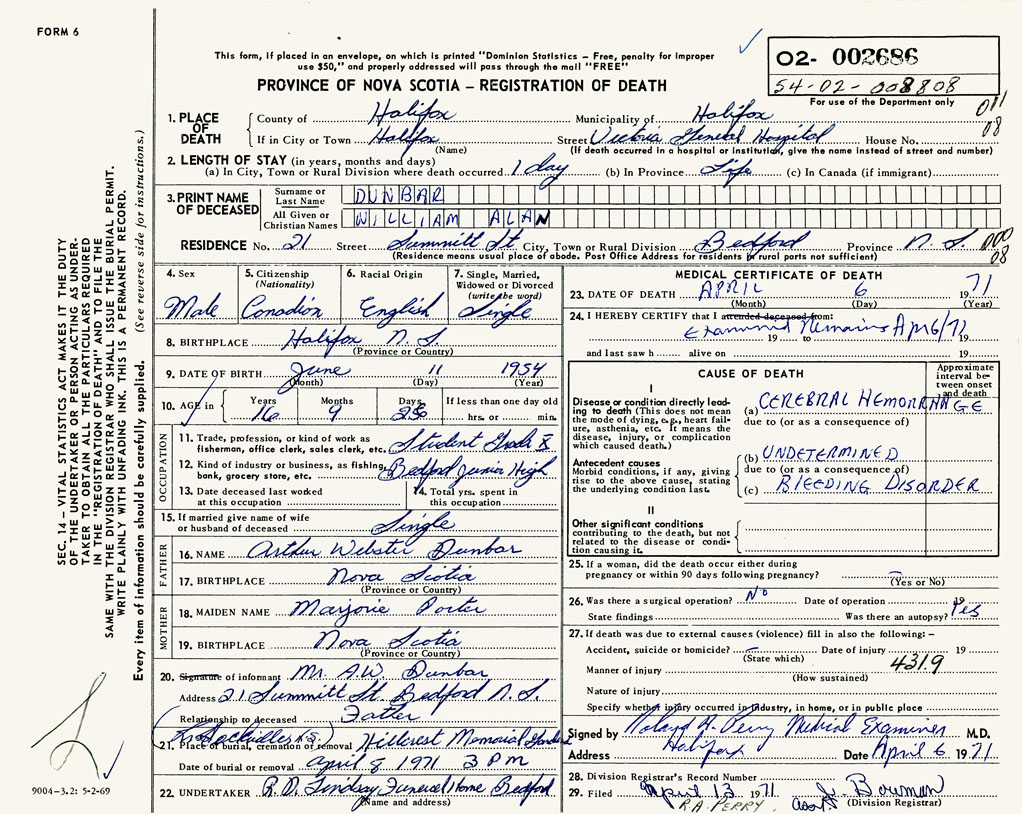 FORM 6
This form, if placed in an envelope, on which is printed "Dominion Statistics – Free, penalty for improper
use $50," and properly addressed will pass through the mail "FREE"
PROVINCE OF NOVA SCOTIA – REGISTRATION OF DEATH
02- 002686
54-02-008808
For use of the Department only
011
08
1. PLACE OF DEATH
County of Halifax Municipality of Halifax
If in City or Town Halifax Street Victoria General Hospital House No.
(Name) (If death occurred in a hospital or institution, give the name instead of street and number)
2. LENGTH OF STAY (in years, months and days)
(a) In City, Town or Rural Division where death occurred 1 day (b) In Province Life (c) In Canada (if immigrant)
3. PRINT NAME OF DECEASED
Surname or Last Name DUNBAR
All Given or Christian Names WILLIAM ALAN
RESIDENCE No. 21 Street Summitt St City, Town or Rural Division Bedford Province N.S.
000
08
(Residence means usual place of abode. Post Office Address for residents in rural parts not sufficient)
4. Sex
Male
5. Citizenship
(Nationality)
Canadian
6. Racial Origin
English
7. Single, Married,
Widowed or Divorced
(write the word)
Single
8. BIRTHPLACE Halifax N.S.
(Province or Country)
9. DATE OF BIRTH June 11 1954
(Month) (Day) (Year)
10. AGE in
Years Months Days If less than one day old
16 9 hrs. or min.
OCCUPATION
11. Trade, profession, or kind of work as
fisherman, office clerk, sales clerk, etc. Student Grade X
12. Kind of industry or business, as fishing,
bank, grocery store, etc. Bedford Junior High
13. Date deceased last worked
at this occupation
14. Total yrs. spent in
this occupation
15. If married give name of wife
or husband of deceased Single
FATHER
16. NAME Arthur Webster Dunbar
17. BIRTHPLACE Nova Scotia
(Province or Country)
MOTHER
18. MAIDEN NAME Marjorie Porter
19. BIRTHPLACE Nova Scotia
(Province or Country)
20. Signature of informant Mr. A.W. Dunbar
Address 21 Summitt St. Bedford N.S.
Relationship to deceased Father
Sackville N.S.)
21. Place of burial, cremation or removal Hillcrest Memorial Gardens
Date of burial or removal April 8 1971 3 PM
22. UNDERTAKER R.D. Lindsay Funeral Home Bedford
(Name and address)
MEDICAL CERTIFICATE OF DEATH
23. DATE OF DEATH APRIL 6 1971
(Month) (Day) (Year)
24. I HEREBY CERTIFY that I attended deceased from:
Examined Remains Apr 6/71
19 to 19
and last saw h alive on 19
CAUSE OF DEATH
Approximate
interval be-
tween onset
and death
I
Disease or condition directly lead-
ing to death (This does not mean
the mode of dying, e.g., heart fail-
ure, asthenia, etc. It means the
disease, injury, or complication
which caused death.)
(a) CEREBRAL HEMORRHAGE
due to (or as a consequence of)
Antecedent causes
Morbid conditions, if any, giving
rise to the above cause, stating
the underlying condition last.
(b) UNDETERMINED
due to (or as a consequence of)
(c) BLEEDING DISORDER
II
Other significant conditions
contributing to the death, but not
related to the disease or condi-
tion causing it.
25. If a woman, did the death occur either during
pregnancy or within 90 days following pregnancy? –
(Yes or No)
26. Was there a surgical operation? No Date of operation 19
State findings Was there an autopsy? Yes
27. If death was due to external causes (violence) fill in also the following: –
Accident, suicide or homicide? – Date of injury 19
(State which)
4319
Manner of injury
(How sustained)
Nature of injury
Specify whether injury occurred in industry, in home, or in public place
Signed by Roland H. Perry Medical Examiner M.D.
Address Halifax Date April 6 1971
28. Division Registrar's Record Number
29. Filed April 13 1971 J. Bowman
R.A. PERRY Asst. (Division Registrar)
SEC. 14 – VITAL STATISTICS ACT MAKES IT THE DUTY
OF THE UNDERTAKER OR PERSON ACTING AS UNDER-
TAKER TO OBTAIN ALL THE PARTICULARS REQUIRED
IN THE "REGISTRATION OF DEATH" AND TO FILE THE
SAME WITH THE DIVISION REGISTRAR WHO SHALL ISSUE THE BURIAL PERMIT.
WRITE PLAINLY WITH UNFADING INK. THIS IS A PERMANENT RECORD.
Every item of information should be carefully supplied. (See reverse side for instructions.)
9004-3.2: 5-2-69